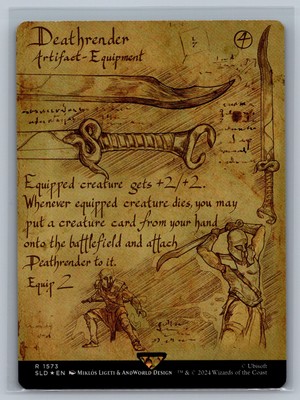 Deathrender
4
Artifact - Equipment
Equipped creature gets +2/+2.
Whenever equipped creature dies, you may
put a creature card from your hand
onto the battlefield and attach
Deathrender to it.
Equip 2
R 1573
SLD ★ EN MIKLÓS LIGETI & ANDWORLD DESIGN
© Ubisoft
™ & © 2024 Wizards of the Coast